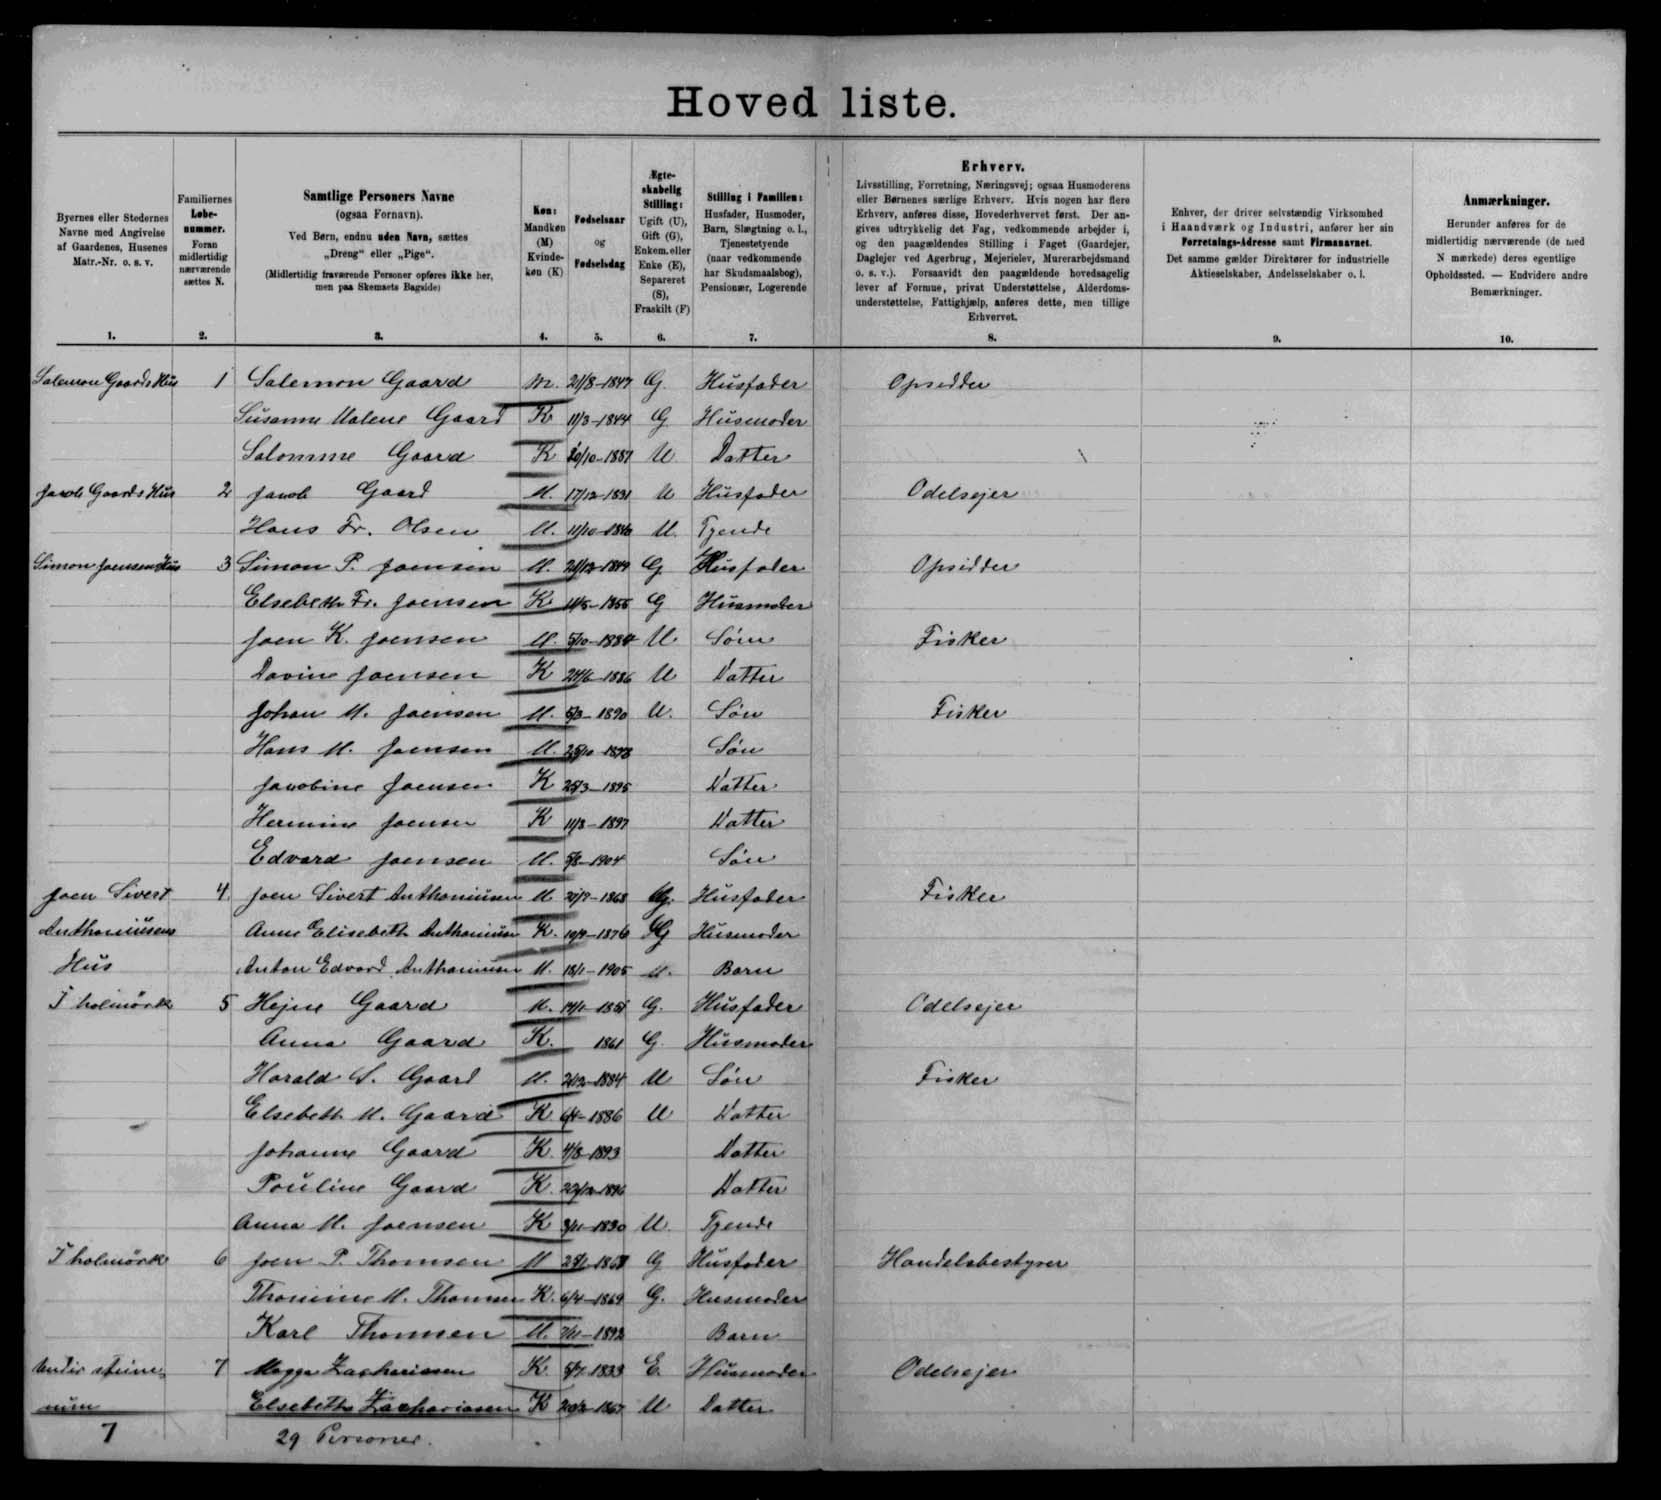 Hovedliste.
Byernes eller Stedernes Navne med Angivelse af Gaardenes, Husenes Matr.-Nr. o. s. v.
Familiernes Løbenummer. Foran midlertidig nærværende sættes N.
Samtlige Personers Navne (ogsaa Fornavn). Ved Børn, endnu uden Navn, sættes „Dreng" eller „Pige". (Midlertidig fraværende Personer opføres ikke her, men paa Skemaets Bagside)
Køn: Mandkøn (M) Kvindekøn (K)
Fødselsaar og Fødselsdag
Ægteskabelig Stilling: Ugift (U), Gift (G), Enkem. eller Enke (E), Separeret (S), Fraskilt (F)
Stilling i Familien: Husfader, Husmoder, Barn, Slægtning o. l., Tjenestetyende (naar vedkommende har Skudsmaalsbog), Pensionær, Logerende
Erhverv. Livsstilling, Forretning, Næringsvej; ogsaa Husmoderens eller Børnenes særlige Erhverv. Hvis nogen har flere Erhverv, anføres disse, Hovederhvervet først. Der angives udtrykkelig det Fag, vedkommende arbejder i, og den paagældendes Stilling i Faget (Gaardejer, Daglejer ved Agerbrug, Mejerielev, Murerarbejdsmand o. s. v.). Forsaavidt den paagældende hovedsagelig lever af Formue, privat Understøttelse, Alderdomsunderstøttelse, Fattighjælp, anføres dette, men tillige Erhvervet.
Enhver, der driver selvstændig Virksomhed i Haandværk og Industri, anfører her sin Forretnings-Adresse samt Firmanavnet. Det samme gælder Direktører for industrielle Aktieselskaber, Andelsselskaber o. l.
Anmærkninger. Herunder anføres for de midlertidig nærværende (de med N mærkede) deres egentlige Opholdssted. — Endvidere andre Bemærkninger.
1. 2. 3. 4. 5. 6. 7. 8. 9. 10.
Salemon Gaards Hus 1 Salemon Gaard M. 21/8-1847 G Husfader Opsidder
Susanne Malene Gaard K 11/3-1844 G Husmoder
Salomine Gaard K 20/10-1887 U Datter
Jacob Gaards Hus 2 Jacob Gaard M. 17/12-1831 U Husfader Odelsejer
Hans Fr. Olsen M. 11/10-1840 U. Tyende
Simon Joensens Hus 3 Simon P. Joensen M. 21/12-1849 G Husfader Opsidder
Elsebeth Fr. Joensen K. 11/5-1855 G Husmoder
Joen K. Joensen M. 5/10-1884 U Søn Fisker
Davine Joensen K 24/6-1886 U Datter
Johan M. Joensen M. 5/3-1890 U. Søn Fisker
Hans M. Joensen M. 25/10-1893 Søn
Jacobine Joensen K 25/3-1895 Datter
Hermine Joensen K 11/3-1897 Datter
Edvard Joensen M. 5/8-1904 Søn
Joen Sivert 4. Joen Sivert Anthoniusen M 21/7-1868 G. Husfader Fisker
Anthoniusens Anne Elisebeth Anthoniusen K. 10/9-1876 G Husmoder
Hus Anton Edvard Anthoniusen M. 18/1-1905 U. Barn
I holmörk 5 Hejne Gaard M. 14/1-1851 G. Husfader Odelsejer
Anna Gaard K. 1861 G. Husmoder
Harald S. Gaard M. 20/2-1884 U Søn Fisker
Elsebeth M. Gaard K 6/4-1886 U Datter
Johanne Gaard K. 4/8-1893 Datter
Pouline Gaard K. 22/12-1896 Datter
Anna M. Joensen K 3/11-1890 U. Tyende
I holmörk 6 Joen P. Thomsen M 25/1-1868 G Husfader Handelsbestyrer
Thomine M. Thomsen K. 6/4-1869 G. Husmoder
Karl Thomsen M. 7/11-1892 Barn
Undir steine- 7 Magga Zachariasen K. 5/7-1833 E. Husmoder Odelsejer
num Elsebeth Zachariasen K 20/2-1867 U Datter
7 29 Personer.